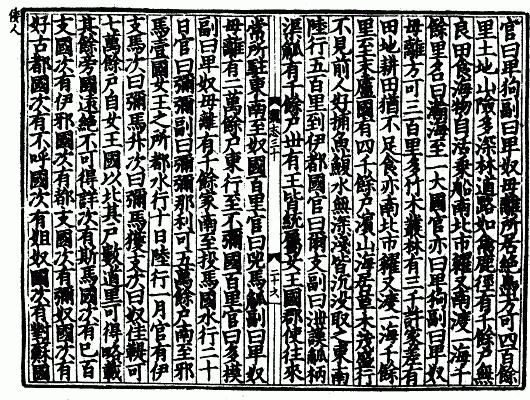 官曰卑狗副曰卑奴母離所居絶㠀方可四百餘
里土地山險多深林道路如禽鹿徑有千餘戶無
良田食海物自活乗船南北市糴又南渡一海千
餘里名曰瀚海至一大國官亦曰卑狗副曰卑奴
母離方可三百里多竹木叢林有三千許家差有
田地耕田猶不足食亦南北市糴又渡一海千餘
里至末盧國有四千餘戶濱山海居草木茂盛行
不見前人好捕魚鰒水無深淺皆沈没取之東南
陸行五百里到伊都國官曰爾支副曰泄謨觚柄
渠觚有千餘戶世有王皆統屬女王國郡使往來
魏志三十
二十六
常所駐東南至奴國百里官曰兕馬觚副曰卑奴
母離有二萬餘戶東行至不彌國百里官曰多模
副曰卑奴母離有千餘家南至投馬國水行二十
日官曰彌彌副曰彌彌那利可五萬餘戶南至邪
馬壹國女王之所都水行十日陸行一月官有伊
支馬次曰彌馬升次曰彌馬獲支次曰奴佳鞮可
七萬餘戶自女王國以北其戶數道里可得略載
其餘旁國遠絶不可得詳次有斯馬國次有已百
支國次有伊邪國次有都支國次有彌奴國次有
好古都國次有不呼國次有姐奴國次有對蘇國
倭人